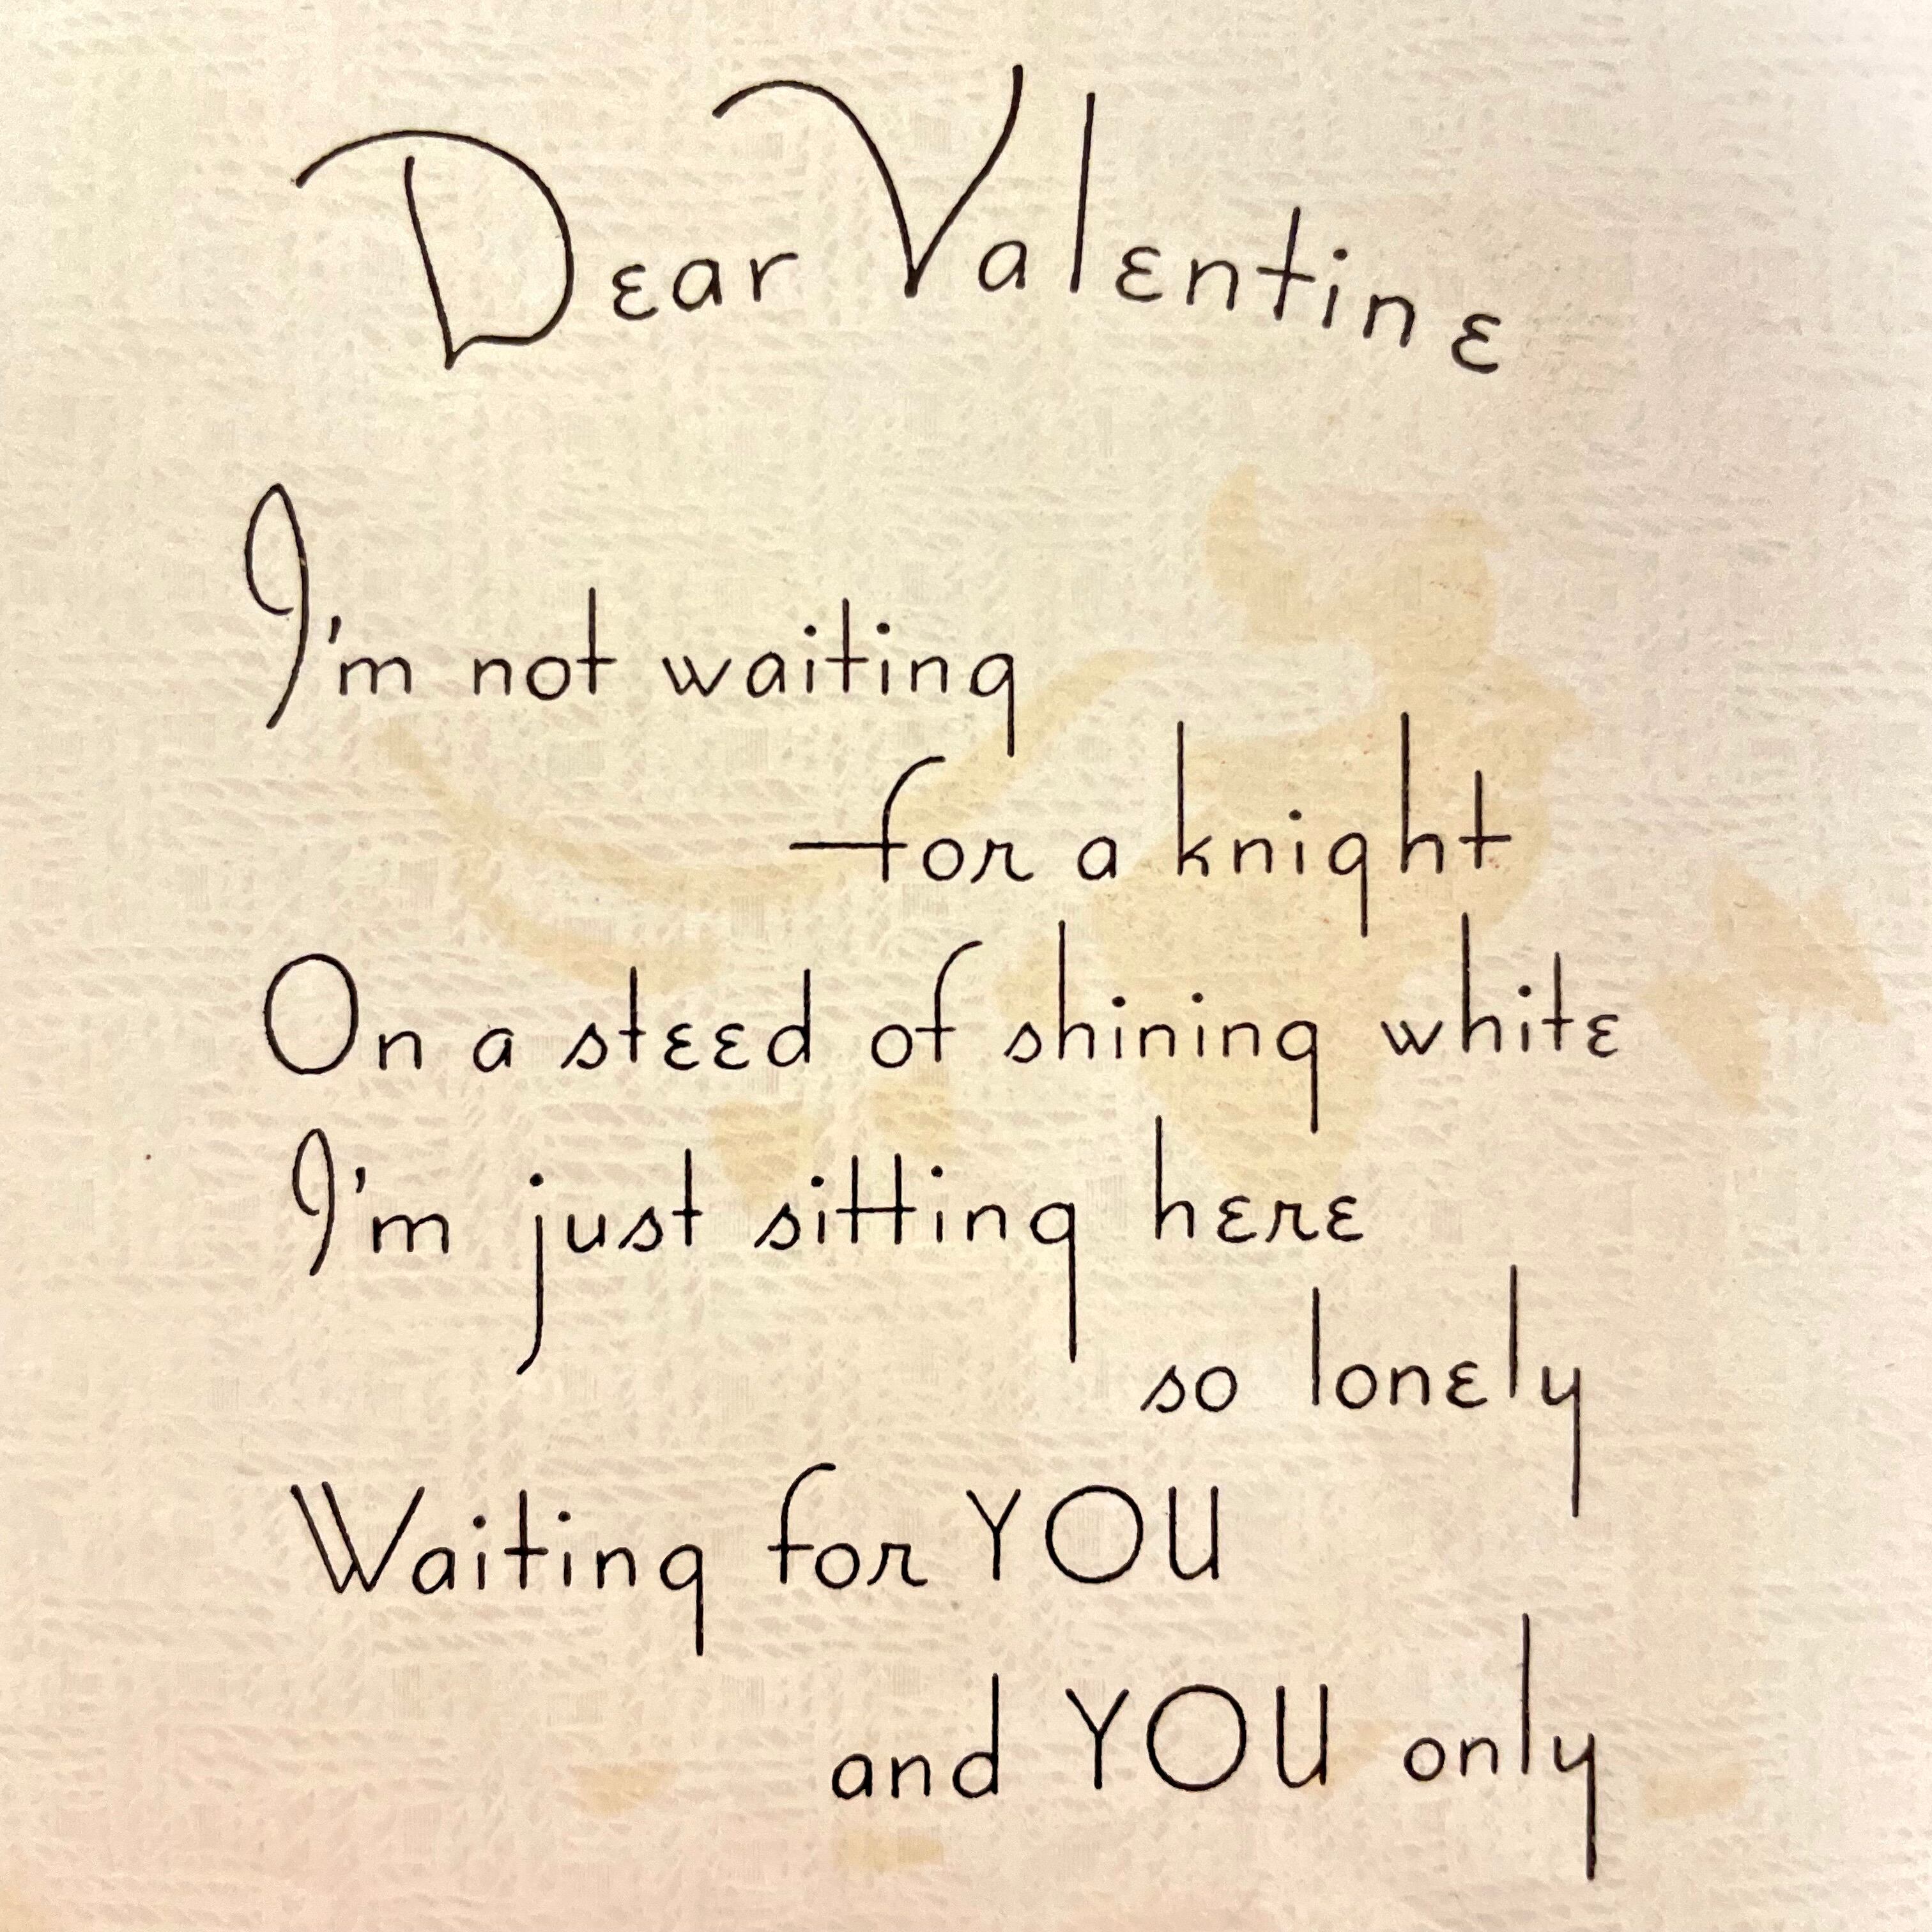 Dear Valentine
I'm not waiting
for a knight
On a steed of shining white
I'm just sitting here
so lonely
Waiting for YOU
and YOU only